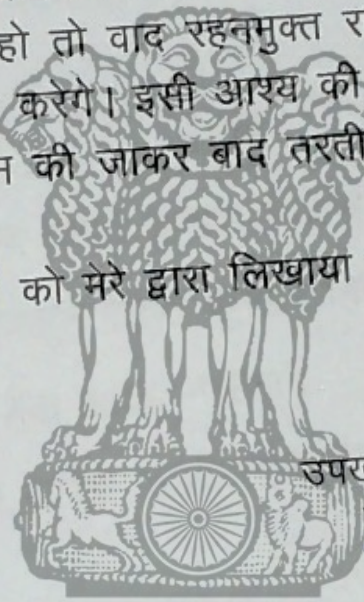 हो तो वाद रहनमुक्त र
करेगे। इसी आश्य की
की जाकर बाद तरती
को मेरे द्वारा लिखाया